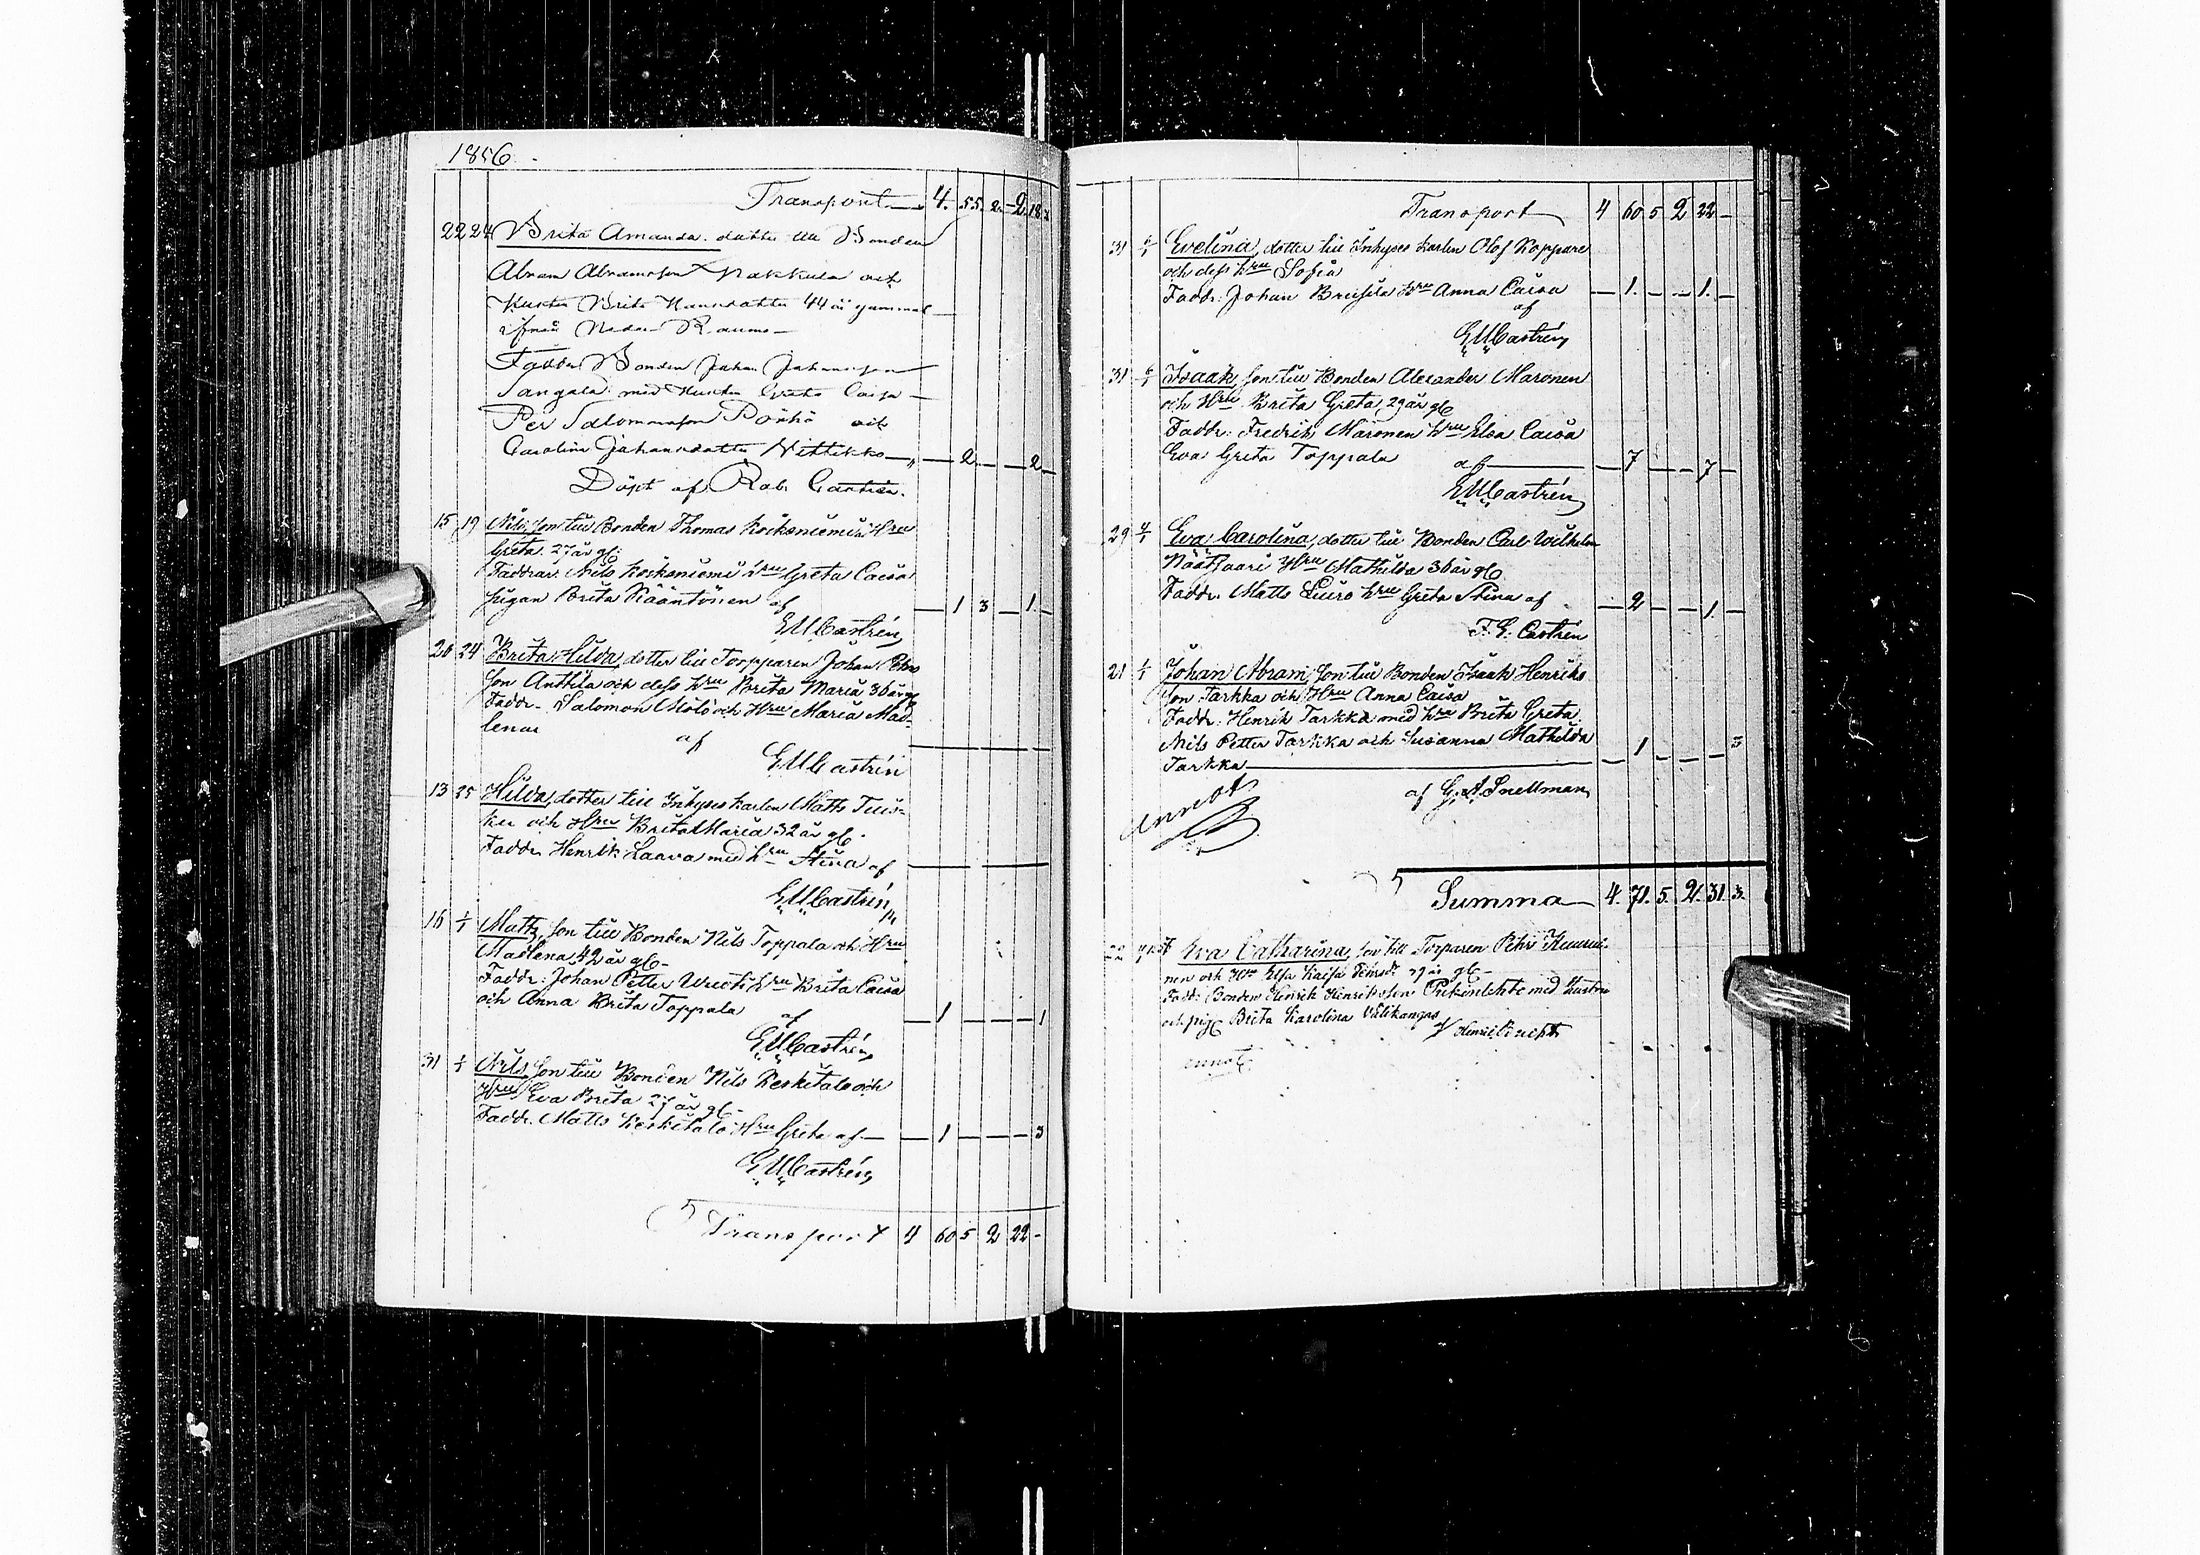 1856.
Transport 4. 55. 2. 2. 18.
22 24 Brita Amanda dotter till Bonden
Abram Abramsson Nakkula och
Hustru Brita Hansdotter 44 år gammal
ifrån Neder Raumo
Faddr Bonden Johan Johansson
Sangala med Hustru Greta Caisa
Per Salomonsson Pörhö och
Carolina Johansdotter Nittikko 2 2
Döpt af Rob. Castrén.
15 19 Nils, son till Bonden Thomas Koskeniemi Hru
Greta 27 år gl.
Faddrar: Nils Koskeniemi hru Greta Caisa
pigan Brita Kääntönen af 1 3 1
E. M. Castrén
20 24 Brita Hilda, dotter till Torpparen Johan Petters
son Anttila och dess hru Brita Maria 36 år gl
Faddr. Salomon Mölö och Hru Maria Mad-
lena
af
E M Castrén
13 25 Hilda, dotter till Inhyses karlen Matts Tuis-
ku och Hru Brita Maria 32 år gl.
Faddr. Henrik Laava med hru Stina af
E. M. Castrén
16 1/1 Matts, son till Bonden Nils Toppala och Hru
Madlena 42 år gl.
Faddr: Johan Petter hru Brita Caisa
och Anna Brita Toppala 1 1
af
E. M. Castrén
31 1/1 Nils, son till Bonden Nils Keskitalo och
Hru Eva Brita 27 år gl.
Faddr. Matts Keskitalo Hru Greta af 1 3
E. M. Castrén
Transport 4 60 5 2 22 -
Transport 4 60 5 2 22 -
31 6/1 Evelina, dotter till Inhyses karlen Olof Koppare
och dess hru Sofia
Faddr: Johan hru Anna Caisa 1. 1.
af
E. M. Castrén
31 6/1 Isaak, son till Bonden Alexander Maronen
och Hru Brita Greta, 29 år gl
Faddr: Fredrik Maronen hru Elsa Caisa
Eva Greta Toppala af 7 7
E. M. Castrén
29 4/1 Eva Carolina, dotter till Bonden Carl Wilhelm
Näätsaari Hru Mathilda 36 år gl
Faddr. Matts Luiro hru Greta Stina af 2 1
F. E. Castrén
21 1/1 Johan Abram, son till Bonden Isaak Henriks
son Tarkka och Hru Anna Caisa
Faddr: Henrik Tarkka med hru Brita Greta
Nils Petter Tarkka och Susanna Mathilda 1 3
Tarkka
af G. A. Snellman
annot
Summa 4. 71. 5. 2. 31. 3.
Eva Catharina, till Torparen Pehr
nen och Hru Elsa Kaisa 29 år gl
Fadd: Bonden Henrik Henriksson med Hustru
och pig Brita Karolina Välikangas
annot